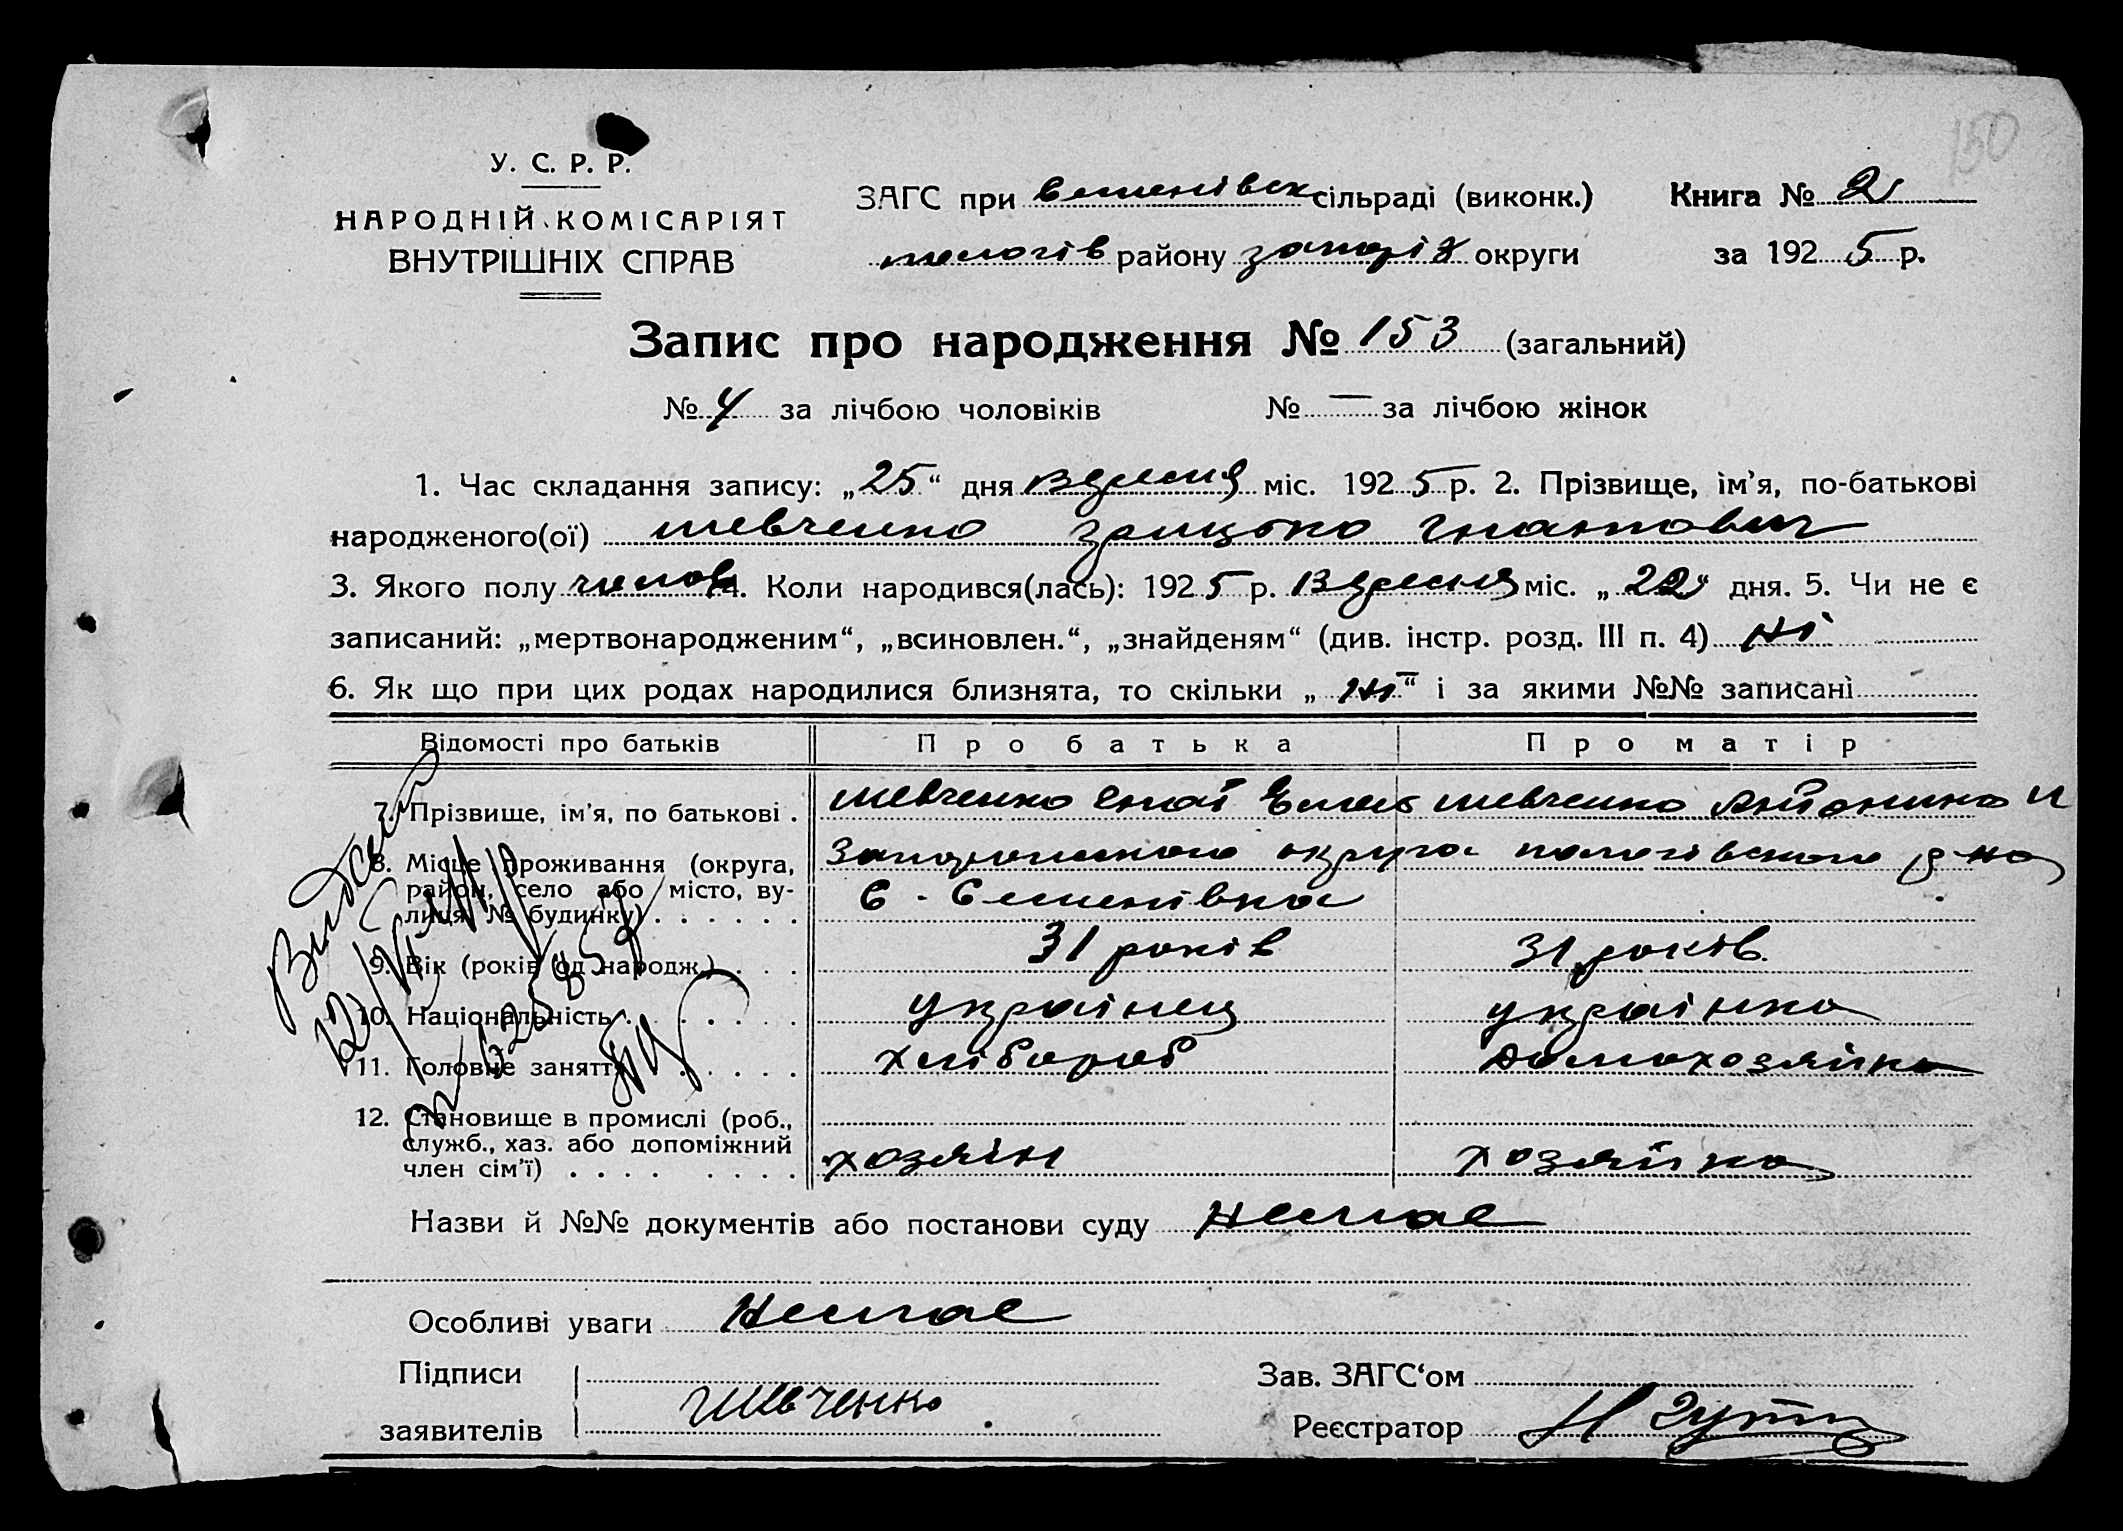 150
У. С. Р. Р.
НАРОДНІЙ КОМІСАРІЯТ
ВНУТРІШНІХ СПРАВ
ЗАГС при сільраді (виконк.) Книга № 2
пологів району запоріж округи за 1925 р.
Запис про народження № 153 (загальний)
№ 4 за лічбою чоловіків № — за лічбою жінок
1. Час складання запису: „25“ дня вересня міс. 1925 р. 2. Прізвище, ім'я, по-батькові
народженого(ої) шевченко гнатович
3. Якого полу чолов 4. Коли народився(лась): 1925 р. вересня міс. „22“ дня. 5. Чи не є
записаний: „мертвонародженим“, „всиновлен.“, „знайденям“ (див. інстр. розд. III п. 4) ні
6. Як що при цих родах народилися близнята, то скільки „ні“ і за якими №№ записані
Відомості про батьків Про батька Про матір
7. Прізвище, ім'я, по батькові . шевченко шевченко Антонина И
8. Місце проживання (округа, район, село або місто, вулиця, № будинку) . . . . . . округа пологівського р-на
С. Семенівка
9. Вік (років од народж.) . . . 31 років 31 років
10. Національність . . . . . . українец українка
11. Головне заняття . . . . . хлібороб домохозяйка
12. Становище в промислі (роб.,
служб., хаз. або допоміжний
член сім'ї) . . . . . . . . хозяін хозяйка
Назви й №№ документів або постанови суду немає
Особливі уваги немає
Підписи
заявителів Шевченко
Зав. ЗАГС‘ом
Реєстратор